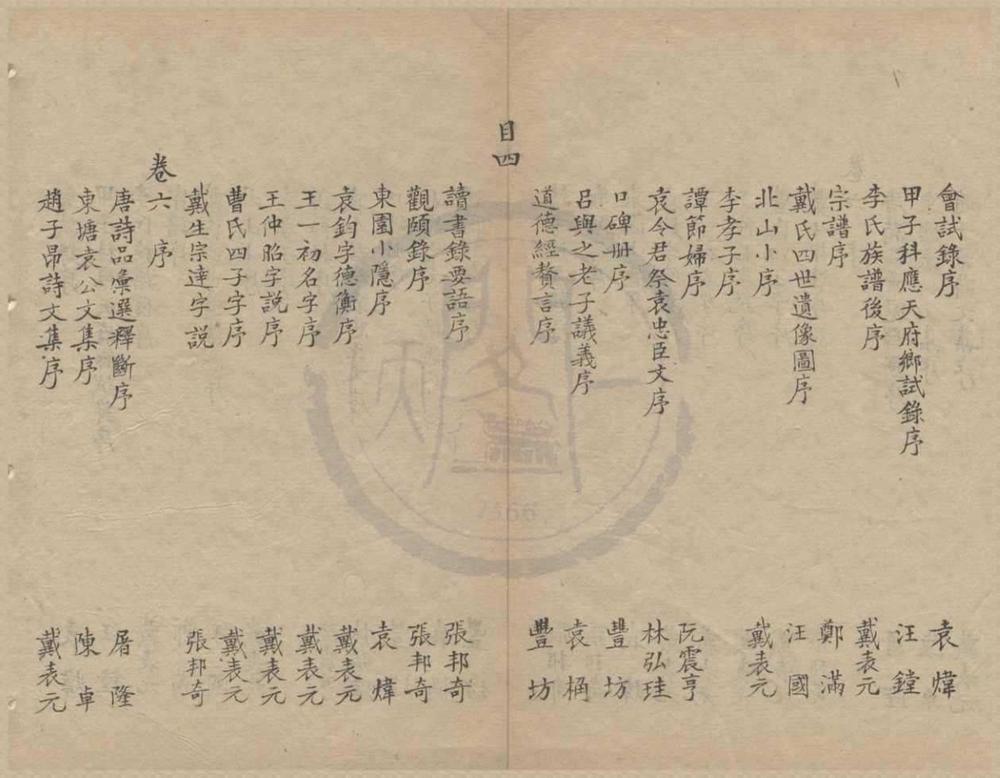 會試錄序 袁煒
甲子科應天府鄉試錄序 汪鏜
李氏族譜後序 戴表元
宗譜序 鄭滿
戴氏四世遺像圖序 汪國
北山小序 戴表元
李孝子序
譚節婦序 阮震亨
袁令君祭袁忠臣文序 林弘珪
口碑册序 豐坊
呂與之老子議義序 袁桷
道德經贅言序 豐坊
目四
讀書錄要語序 張邦奇
觀頤錄序 張邦奇
東園小隱序 袁煒
袁鈞字德衡序 戴表元
王一初名字序 戴表元
王仲昭字說序 戴表元
曹氏四子字序 戴表元
戴生宗逹字說 張邦奇
卷六 序
唐詩品彙選釋斷序 屠隆
東塘袁公文集序 陳卓
趙子昂詩文集序 戴表元